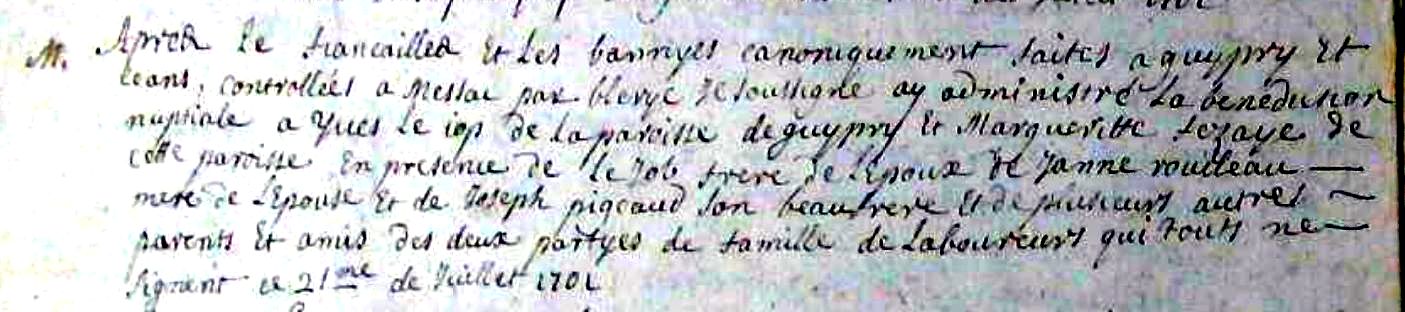 M. Apres le fiancailles Et Les bannyes canoniquement faites a guypry Et
ceans, controllées a Messac par blevye Je soussigné ay administré La benediction
nuptiale a Yves Le iop de La paroisse de guypry Et Margueritte Lezaye de
cette paroisse En presence de le Job frere de L'Epoux de Janne roulleau
mere de L'Epouse Et de Joseph pigeaud son beaufrere Et de plusieurs autres
parents Et amis des deux partyes de famille de Laboureurs qui touts ne
signent ce 21me de Juillet 1701